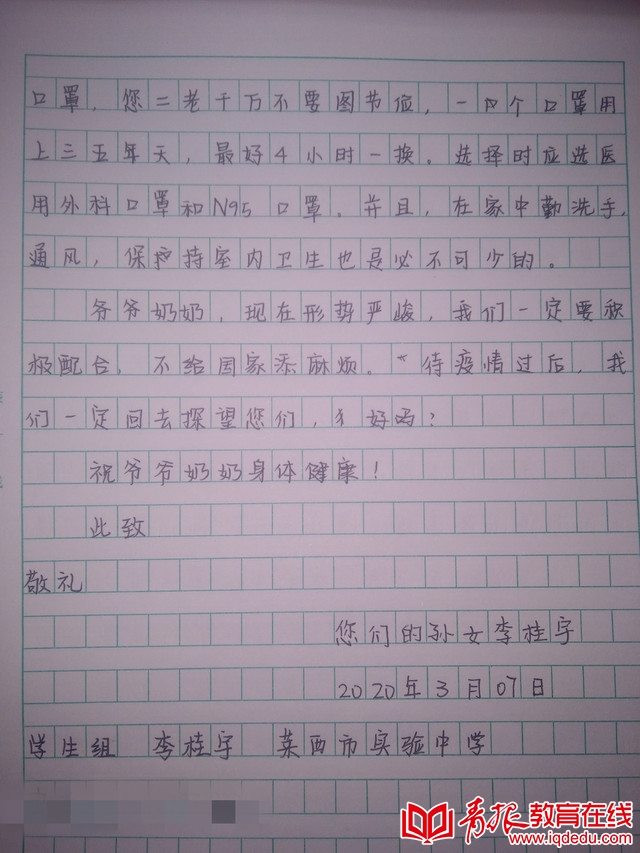 口罩，您二老千万不要图节俭，一个口罩用
上三五年天，最好4小时一换。选择时应选医
用外科口罩和N95口罩。并且，在家中勤洗手，
通风，保护持室内卫生也是必不可少的。
爷爷奶奶，现在形势严峻，我们一定要积
极配合，不给国家添麻烦。待疫情过后，我
们一定回去探望您们，好吗？
祝爷爷奶奶身体健康！
此致
敬礼
您们的孙女李桂宇
2020年3月07日
学生组 李桂宇 莱西市实验中学
青报教育在线
www.iqdedu.com